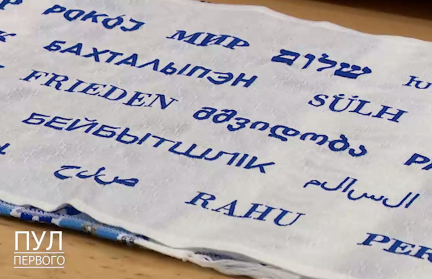 POKOJ МИР שלום
БАХТАЛЫПЭН SÜLH
FRIEDEN მშვიდობა
БЕЙБЫТШЛІК السالم
صلح RAHU
ПУЛ
ПЕРВОГО